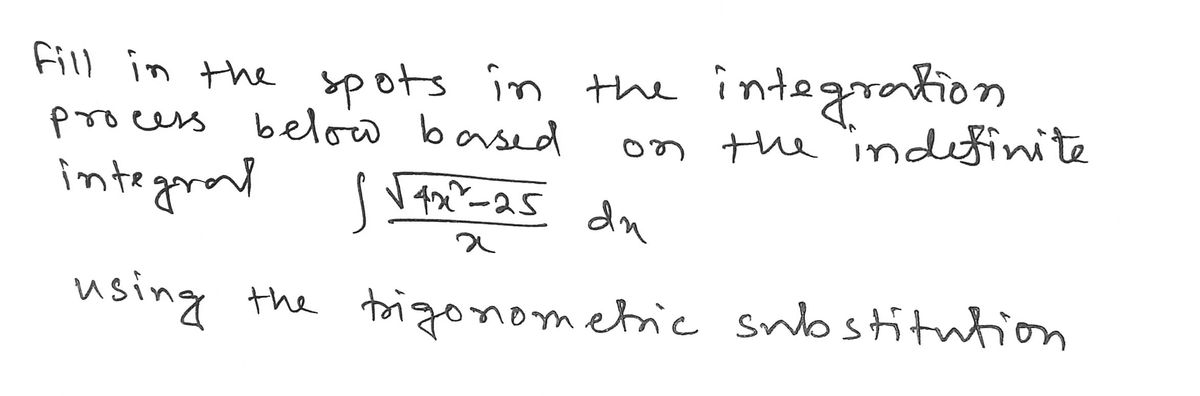 Fill in the spots in the integration
process below based on the indefinite
integral ∫ √(4x²-25) / x dx
using the trigonometric substitution